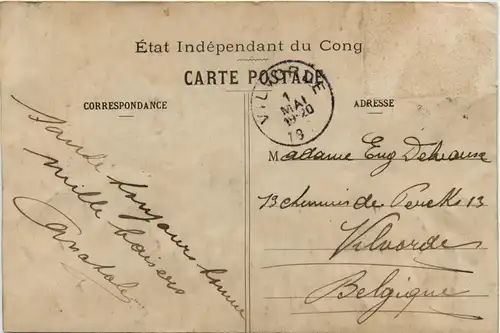 État Indépendant du Cong
CARTE POSTALE
CORRESPONDANCE
ADRESSE
VILVORDE
1
MAI
19-20
19
Santé toujours bonne
mille baisers
Anatole
Madame Eug Delvausse
13 chemin de 13
Vilvorde
Belgique